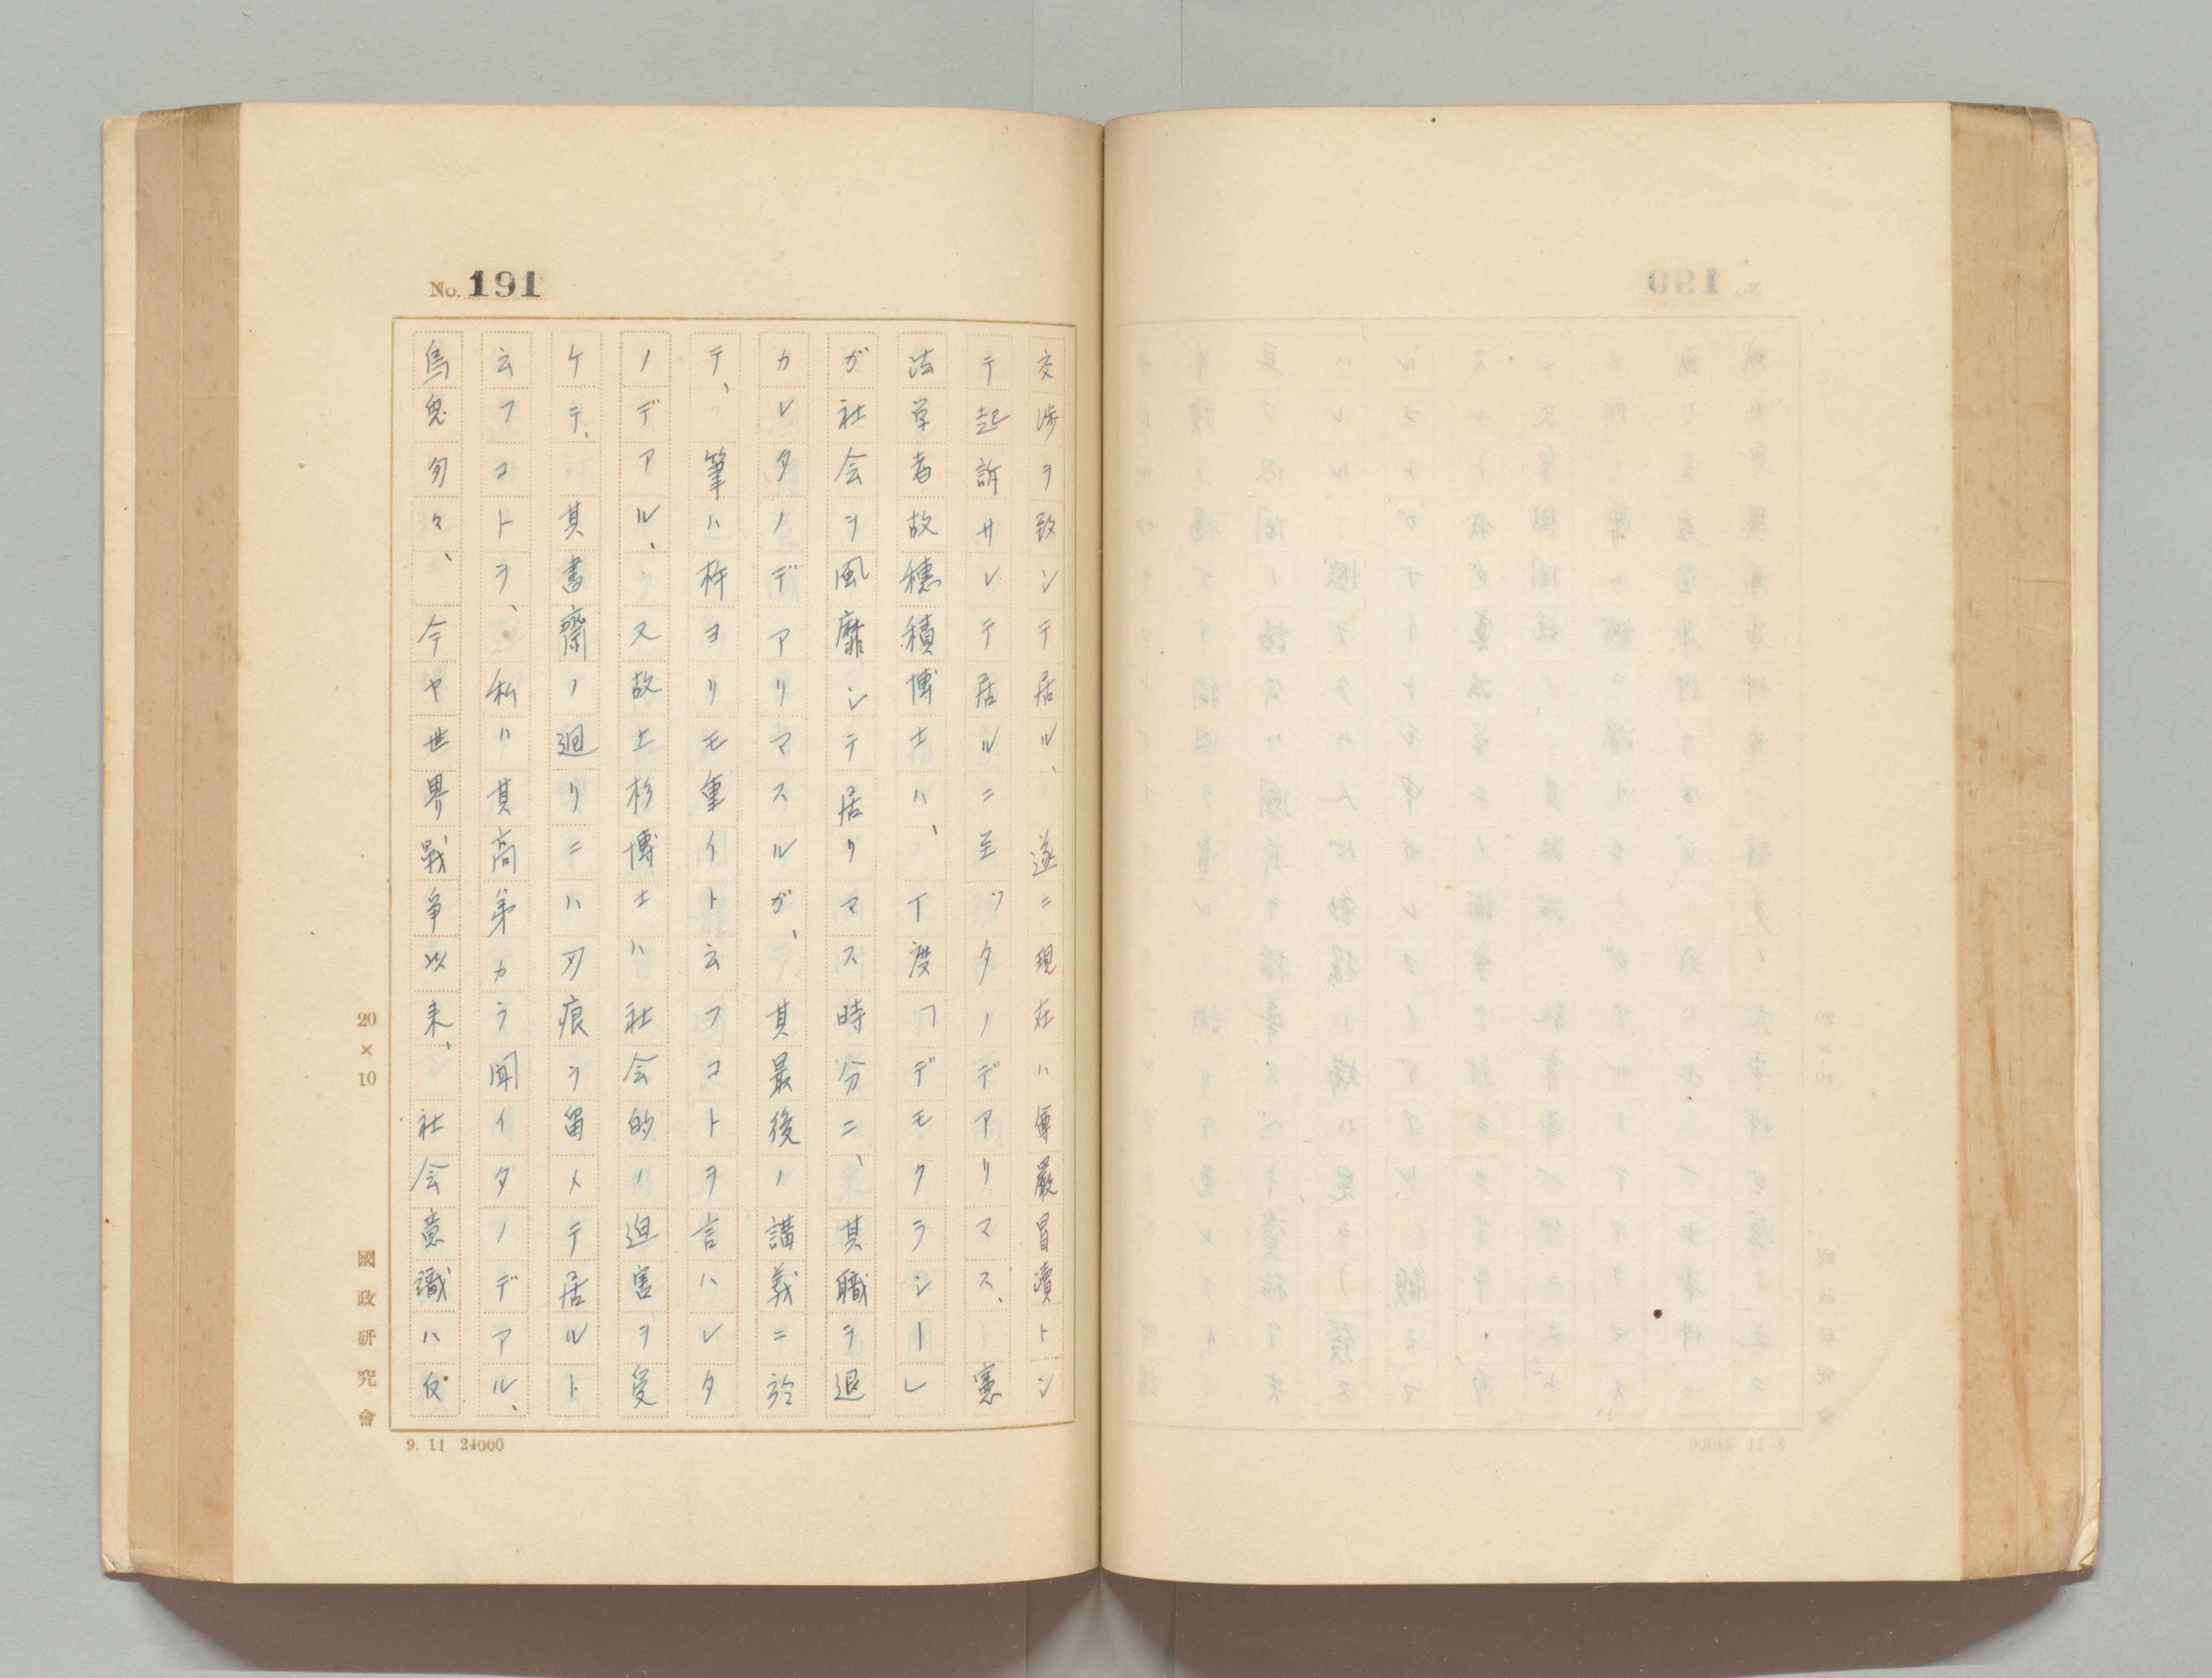 No. 191
交渉ヲ致シテ居ル、遂ニ現在ハ尊嚴冒瀆トシ
テ起訴サレテ居ルニ至ツタノデアリマス、憲
法学者故穗積博士ハ、丁度「デモクラシー」
ガ社会ヲ風靡シテ居リマス時分ニ、其職ヲ退
カレタノデアリマスルガ、其最後ノ講義ニ於
テ、筆ハ杵ヨリモ重イト云フコトヲ言ハレタ
ノデアル、又故上杉博士ハ社会的ノ迫害ヲ受
ケテ、其書齋ノ廻リニハ刃痕ヲ留メテ居ルト
云フコトヲ、私ハ其高弟カラ聞イタノデアル、
烏兎匆々、今ヤ世界戰爭以来、社会意識ハ仅
20×10
國政研究會
9. 11 24000